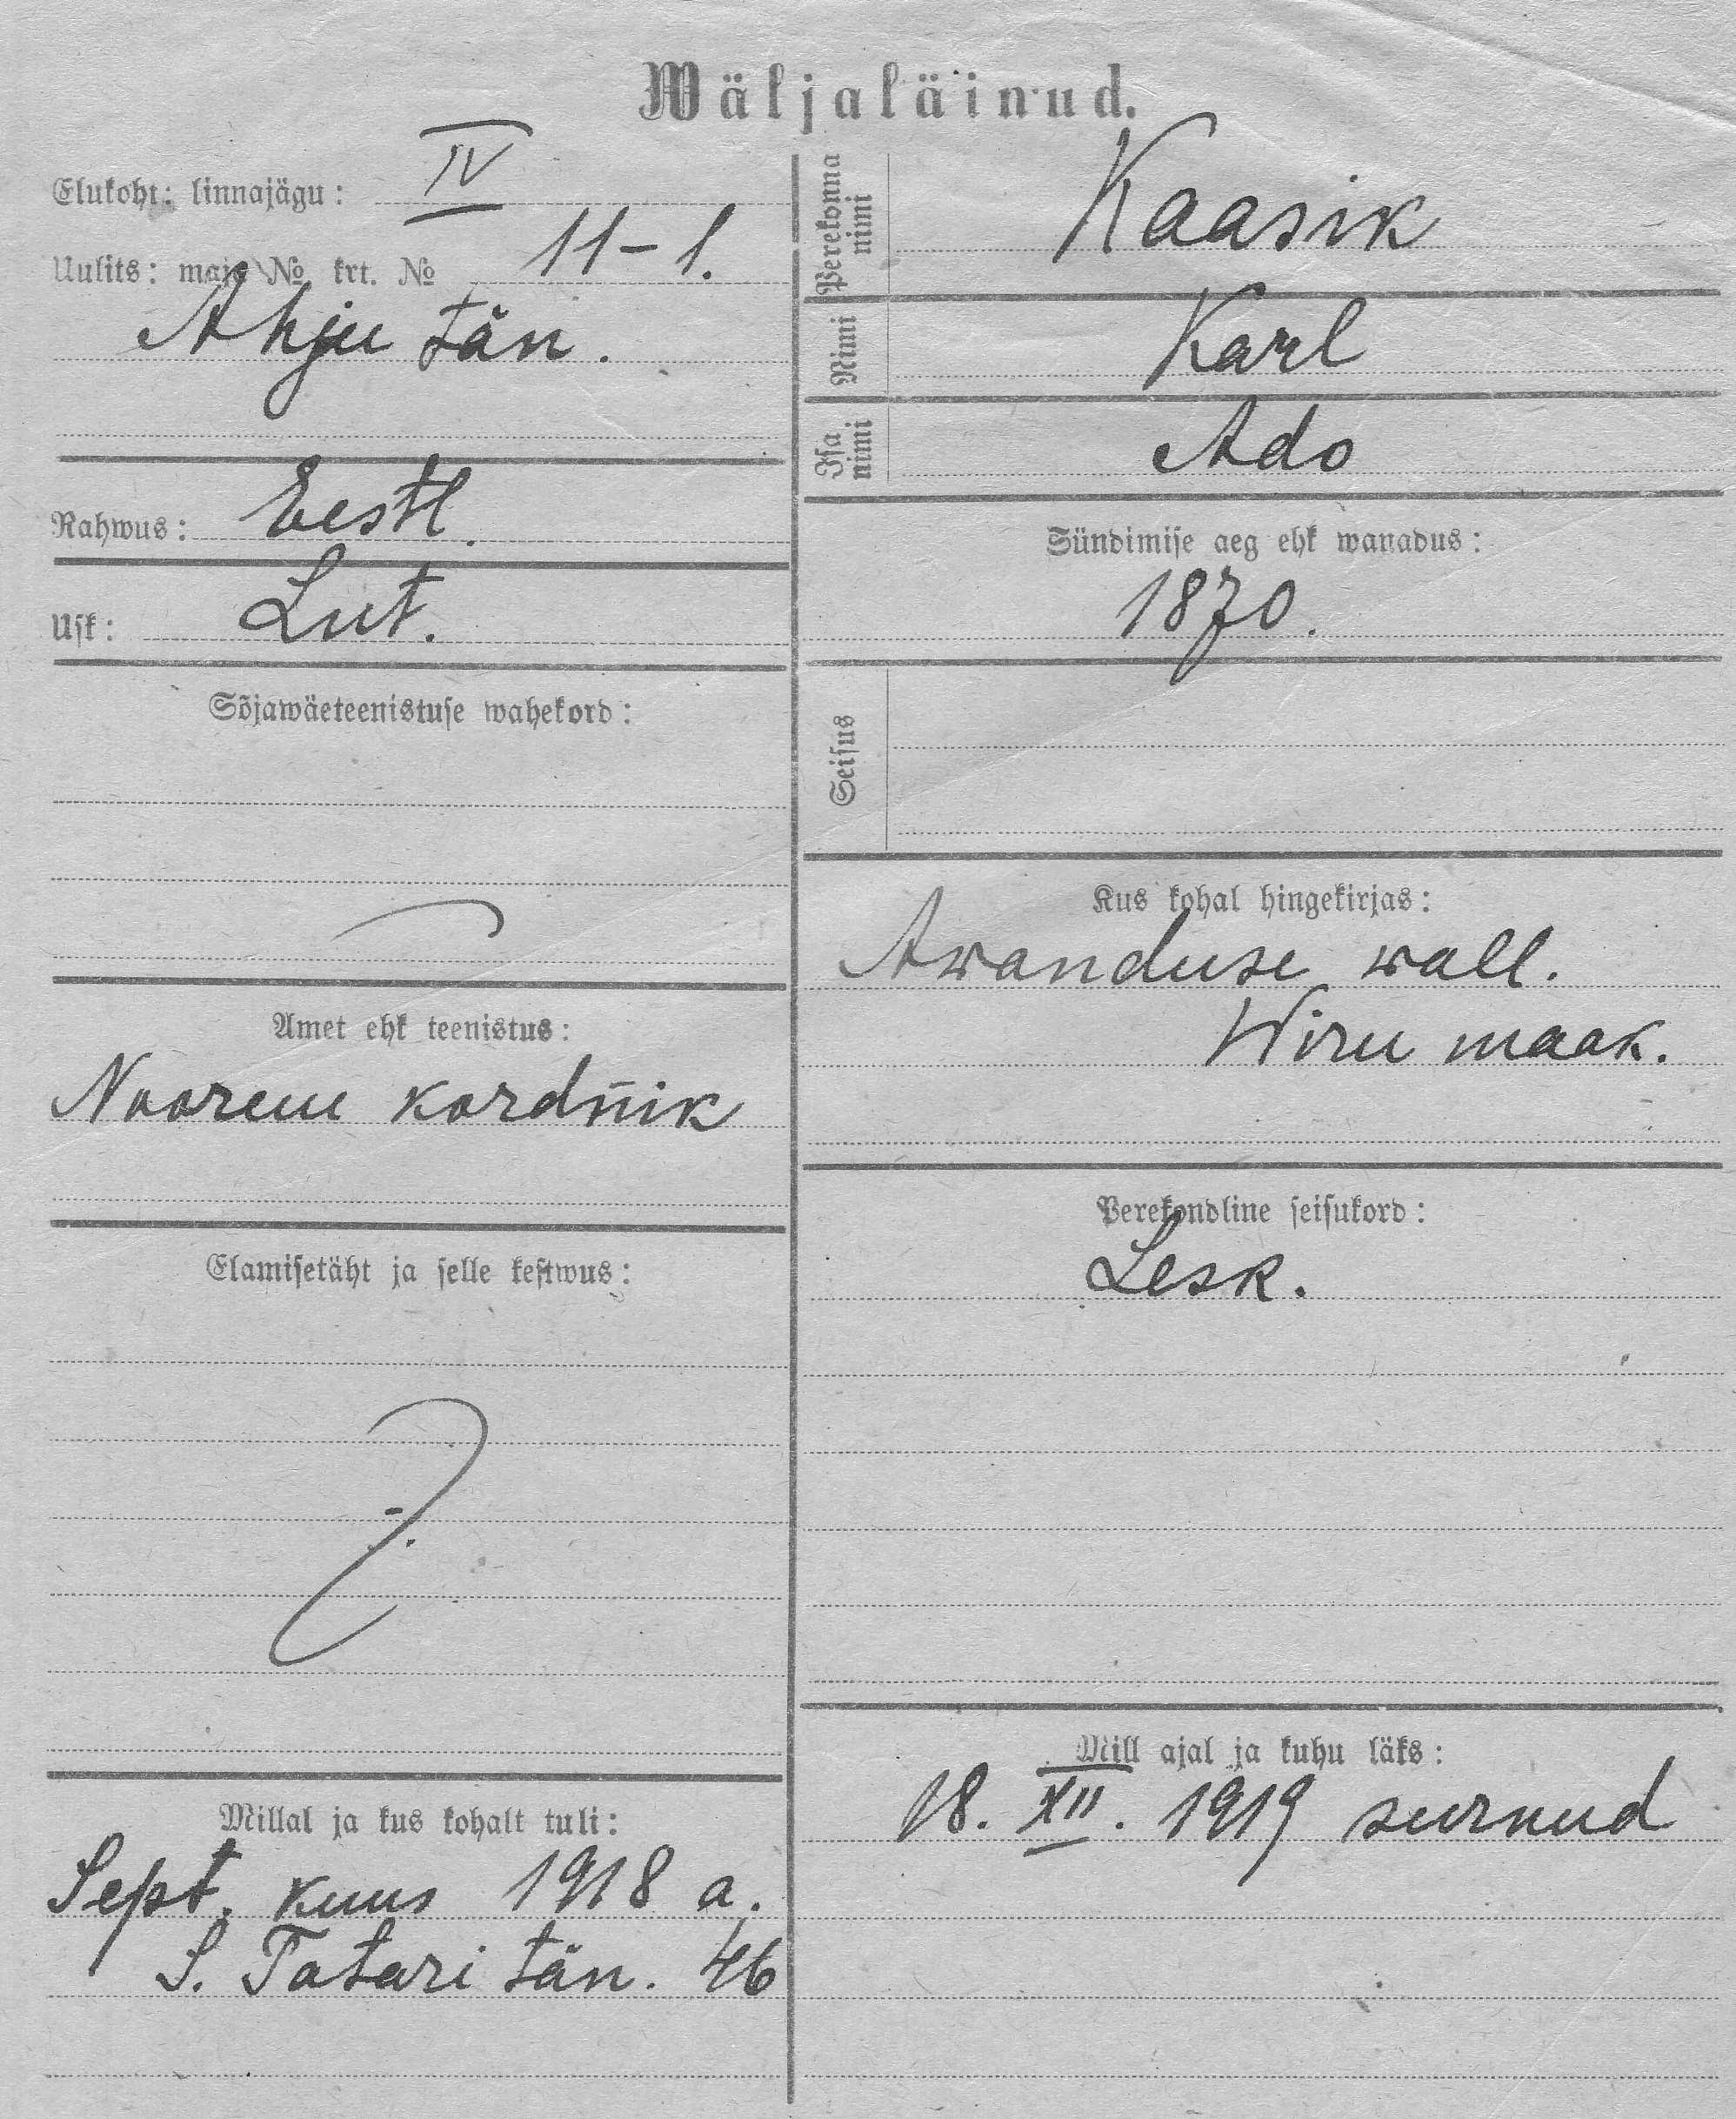 Wäljaläinud.
Elukoht: linnajägu: IV
Uulits: maja № krt. № 11-1.
Ahju tän.
Rahwus: Eestl.
Usk: Lut.
Sõjawäeteenistuse wahekord:
Amet ehk teenistus:
Noorem kordnik
Elamisetäht ja selle kestwus:
Millal ja kus kohalt tuli:
Sept. kuus 1918 a.
S. Tatari tän. 46
Perekonna nimi Kaasik
Nimi Karl
Isa nimi Ado
Sündimise aeg ehk wanadus:
1870.
Seisus
Kus kohal hingekirjas:
Awanduse wall.
Wiru maak.
Perekondline seisukord:
Lesk.
Mill ajal ja kuhu läks:
18. XII. 1919 surnud